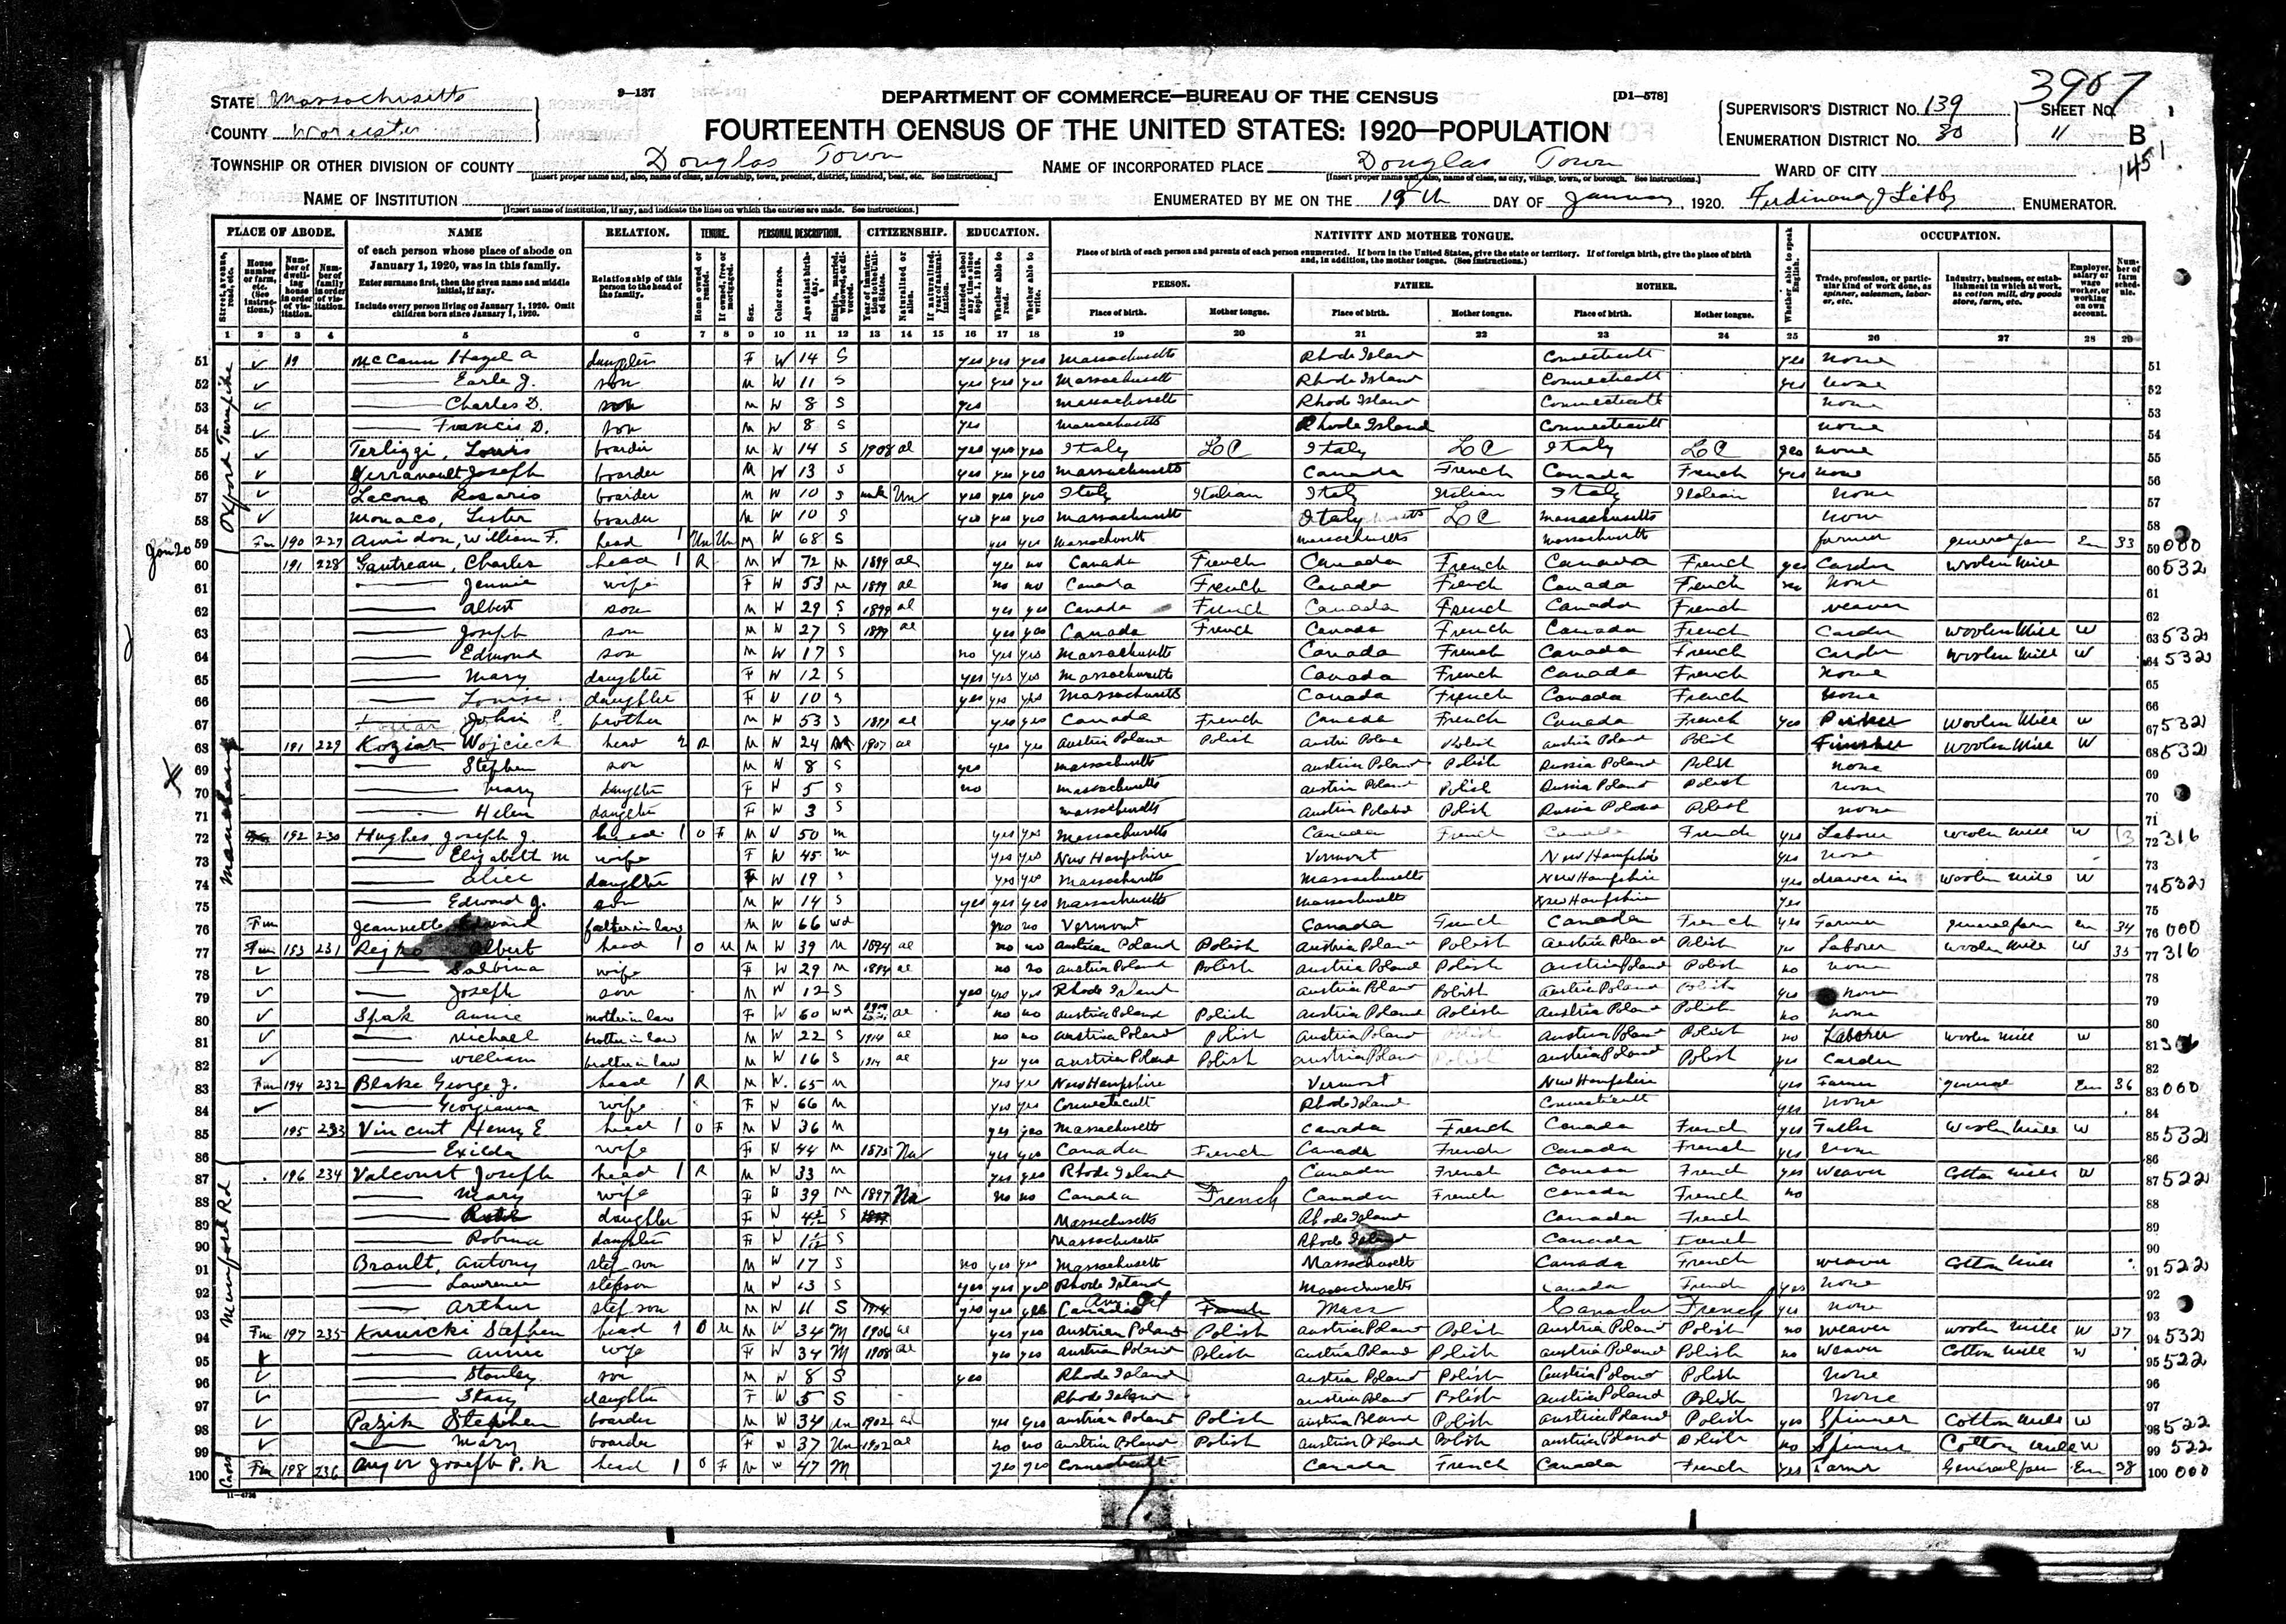 3907
STATE Massachusetts
9-137
DEPARTMENT OF COMMERCE—BUREAU OF THE CENSUS
[D1-578]
SUPERVISOR'S DISTRICT NO. 139
SHEET NO.
COUNTY Worcester
FOURTEENTH CENSUS OF THE UNITED STATES: 1920—POPULATION
ENUMERATION DISTRICT NO. 80
11 B
TOWNSHIP OR OTHER DIVISION OF COUNTY Douglas Town
NAME OF INCORPORATED PLACE Douglas Town
WARD OF CITY
[Insert proper name and, also, name of class, as township, town, precinct, district, hundred, beat, etc. See instructions.]
[Insert proper name and, also, name of class, as city, village, town, or borough. See instructions.]
NAME OF INSTITUTION
ENUMERATED BY ME ON THE 19th DAY OF January, 1920. Ferdinand J Libby ENUMERATOR.
[Insert name of institution, if any, and indicate the lines on which the entries are made. See instructions.]
PLACE OF ABODE. NAME RELATION. TENURE. PERSONAL DESCRIPTION. CITIZENSHIP. EDUCATION. NATIVITY AND MOTHER TONGUE. OCCUPATION.
of each person whose place of abode on January 1, 1920, was in this family.
Enter surname first, then the given name and middle initial, if any.
Include every person living on January 1, 1920. Omit children born since January 1, 1920.
Relationship of this person to the head of the family.
Place of birth of each person and parents of each person enumerated. If born in the United States, give the state or territory. If of foreign birth, give the place of birth and, in addition, the mother tongue. (See instructions.)
PERSON. FATHER. MOTHER.
Place of birth. Mother tongue. Place of birth. Mother tongue. Place of birth. Mother tongue.
Whether able to speak English.
Trade, profession, or particular kind of work done, as spinner, salesman, laborer, etc.
Industry, business, or establishment in which at work, as cotton mill, dry goods store, farm, etc.
Employer, salary or wage worker, or working on own account.
Number of farm schedule.
1 2 3 4 5 6 7 8 9 10 11 12 13 14 15 16 17 18 19 20 21 22 23 24 25 26 27 28 29
Oxford Turnpike
51 McCann Hazel A daughter F W 14 S yes yes yes Massachusetts Rhode Island Connecticutt yes none 51
52 Earle J. son M W 11 S yes yes yes Massachusetts Rhode Island Connecticutt yes none 52
53 Charles D. son M W 8 S yes Massachusetts Rhode Island Connecticutt none 53
54 Francis D. son M W 8 S yes Massachusetts Rhode Island Connecticutt none 54
55 Terlizzi, Louis boarder M W 14 S 1908 al yes yes yes Italy Italy Italy yes none 55
56 Joseph boarder M W 13 S yes yes yes Massachusetts Canada French Canada French yes none 56
57 Rosario boarder M W 10 S unk Un yes yes yes Italy Italian Italy Italian Italy Italian none 57
58 Monaco, Lester boarder M W 10 S yes yes yes Massachusetts Italy Massachusetts none 58
59 Fm 190 227 Amidon, William F. head 1 Un Un M W 68 S yes yes Massachusetts Massachusetts Massachusetts farmer general farm Em 33 59 000
Jan 20
60 191 228 Gautreau, Charles head 1 R M W 72 M 1899 al yes no Canada French Canada French Canada French yes Carder woolen Mill 60 532
61 Jennie wife F W 53 M 1899 al no no Canada French Canada French Canada French no none 61
62 Albert son M W 29 S 1899 al yes yes Canada French Canada French Canada French weaver 62
63 Joseph son M W 27 S 1899 al yes yes Canada French Canada French Canada French Carder woolen Mill W 63 532
64 Edmond son M W 17 S no yes yes Massachusetts Canada French Canada French Carder woolen Mill W 64 532
65 Mary daughter F W 12 S yes yes yes Massachusetts Canada French Canada French none 65
66 Louise daughter F W 10 S yes yes yes Massachusetts Canada French Canada French none 66
67 John brother M W 53 S 1899 al yes yes Canada French Canada French Canada French yes Picker Woolen Mill W 67 532
68 191 229 Koziar Wojciech head 2 R M W 24 M 1907 al yes yes Austria Poland Polish Austria Poland Polish Austria Poland Polish Finisher Woolen Mill W 68 532
69 Stephen son M W 8 S yes Massachusetts Austria Poland Polish Russia Poland Polish none 69
70 Mary daughter F W 5 S no Massachusetts Austria Poland Polish Russia Poland Polish none 70
71 Helen daughter F W 3 S Massachusetts Austria Poland Polish Russia Poland Polish none 71
72 192 230 Hughes, Joseph J. head 1 O F M W 50 M yes yes Massachusetts Canada French Canada French yes Labour woolen Mill W 72 316
73 Elizabeth M wife F W 45 M yes yes New Hampshire Vermont New Hampshire yes none 73
74 Alice daughter F W 19 S yes yes Massachusetts Massachusetts New Hampshire yes drawer in woolen Mill W 74 532
75 Edward J. son M W 14 S yes yes yes Massachusetts Massachusetts New Hampshire yes 75
76 Fm Jeannette Edward father in law M W 66 wd yes no Vermont Canada French Canada French yes Farmer general farm Em 34 76 000
77 Fm 193 231 Albert head 1 O M M W 39 M 1894 al no no Austria Poland Polish Austria Poland Polish Austria Poland Polish yes Laborer woolen Mill W 35 77 316
78 wife F W 29 M 1894 al no no Austria Poland Polish Austria Poland Polish Austria Poland Polish no none 78
79 Joseph son M W 12 S yes yes yes Rhode Island Austria Poland Polish Austria Poland Polish yes none 79
80 Spak Annie mother in law F W 60 wd al no no Austria Poland Polish Austria Poland Polish Austria Poland Polish no none 80
81 Michael brother in law M W 22 S 1914 al no no Austria Poland Polish Austria Poland Polish Austria Poland Polish no Laborer woolen Mill W 81
82 William brother in law M W 16 S 1914 al yes yes Austria Poland Polish Austria Poland Polish Austria Poland Polish yes Carder 82
83 Fm 194 232 Blake George J. head 1 R M W 65 M yes yes New Hampshire Vermont New Hampshire yes Farmer general Em 36 83 000
84 Georgianna wife F W 66 M yes yes Connecticutt Rhode Island Connecticutt yes none 84
85 195 233 Vincent Henry E head 1 O F M W 36 M yes yes Massachusetts Canada French Canada French yes Fuller Woolen Mill W 85 532
86 Exilda wife F W 44 M 1875 Na yes yes Canada French Canada French Canada French yes none 86
Mumford Rd
87 196 234 Valcourt Joseph head 1 R M W 33 M yes yes Rhode Island Canada French Canada French yes Weaver Cotton Mill W 87 522
88 Mary wife F W 39 M 1897 Na no no Canada French Canada French Canada French no 88
89 daughter F W S Massachusetts Rhode Island Canada French 89
90 Robina daughter F W S Massachusetts Rhode Island Canada French 90
91 Brault, Antony step son M W 17 S no yes yes Massachusetts Massachusetts Canada French weaver Cotton Mill 91 522
92 Lawrence stepson M W 13 S yes yes yes Rhode Island Massachusetts Canada French yes none 92
93 Arthur step son M W 11 S 1914 yes yes yes Canada French Mass Canada French yes none 93
94 Fm 197 235 Kunicki Stephen head 1 O M M W 34 M 1906 al yes yes Austrian Poland Polish Austria Poland Polish Austria Poland Polish no weaver woolen Mill W 37 94 532
95 Annie wife F W 34 M 1908 al yes yes Austrian Poland Polish Austria Poland Polish Austria Poland Polish no Weaver Cotton Mill W 95 522
96 Stanley son M W 8 S yes Rhode Island Austria Poland Polish Austria Poland Polish none 96
97 daughter F W 5 S Rhode Island Austria Poland Polish Austria Poland Polish none 97
98 Pazik Stephen boarder M W 34 Un 1902 al yes yes Austria Poland Polish Austria Poland Polish Austria Poland Polish yes Spinner Cotton Mill W 98 522
99 Mary boarder F W 37 Un 1902 al no no Austria Poland Polish Austria Poland Polish Austria Poland Polish no Spinner Cotton Mill W 99 522
100 Fm 198 236 Joseph P. N head 1 O F M W 47 M yes yes Connecticutt Canada French Canada French yes Farmer General farm Em 38 100 000
11-4736